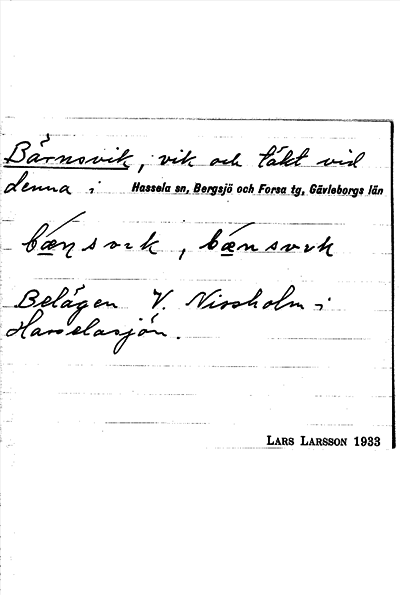 Bärnsvik, vik och täkt vid
denna i Hassela sn, Bergsjö och Forsa tg, Gävleborgs län
Belägen V. Nissholm i
Hasselasjön.
LARS LARSSON 1933